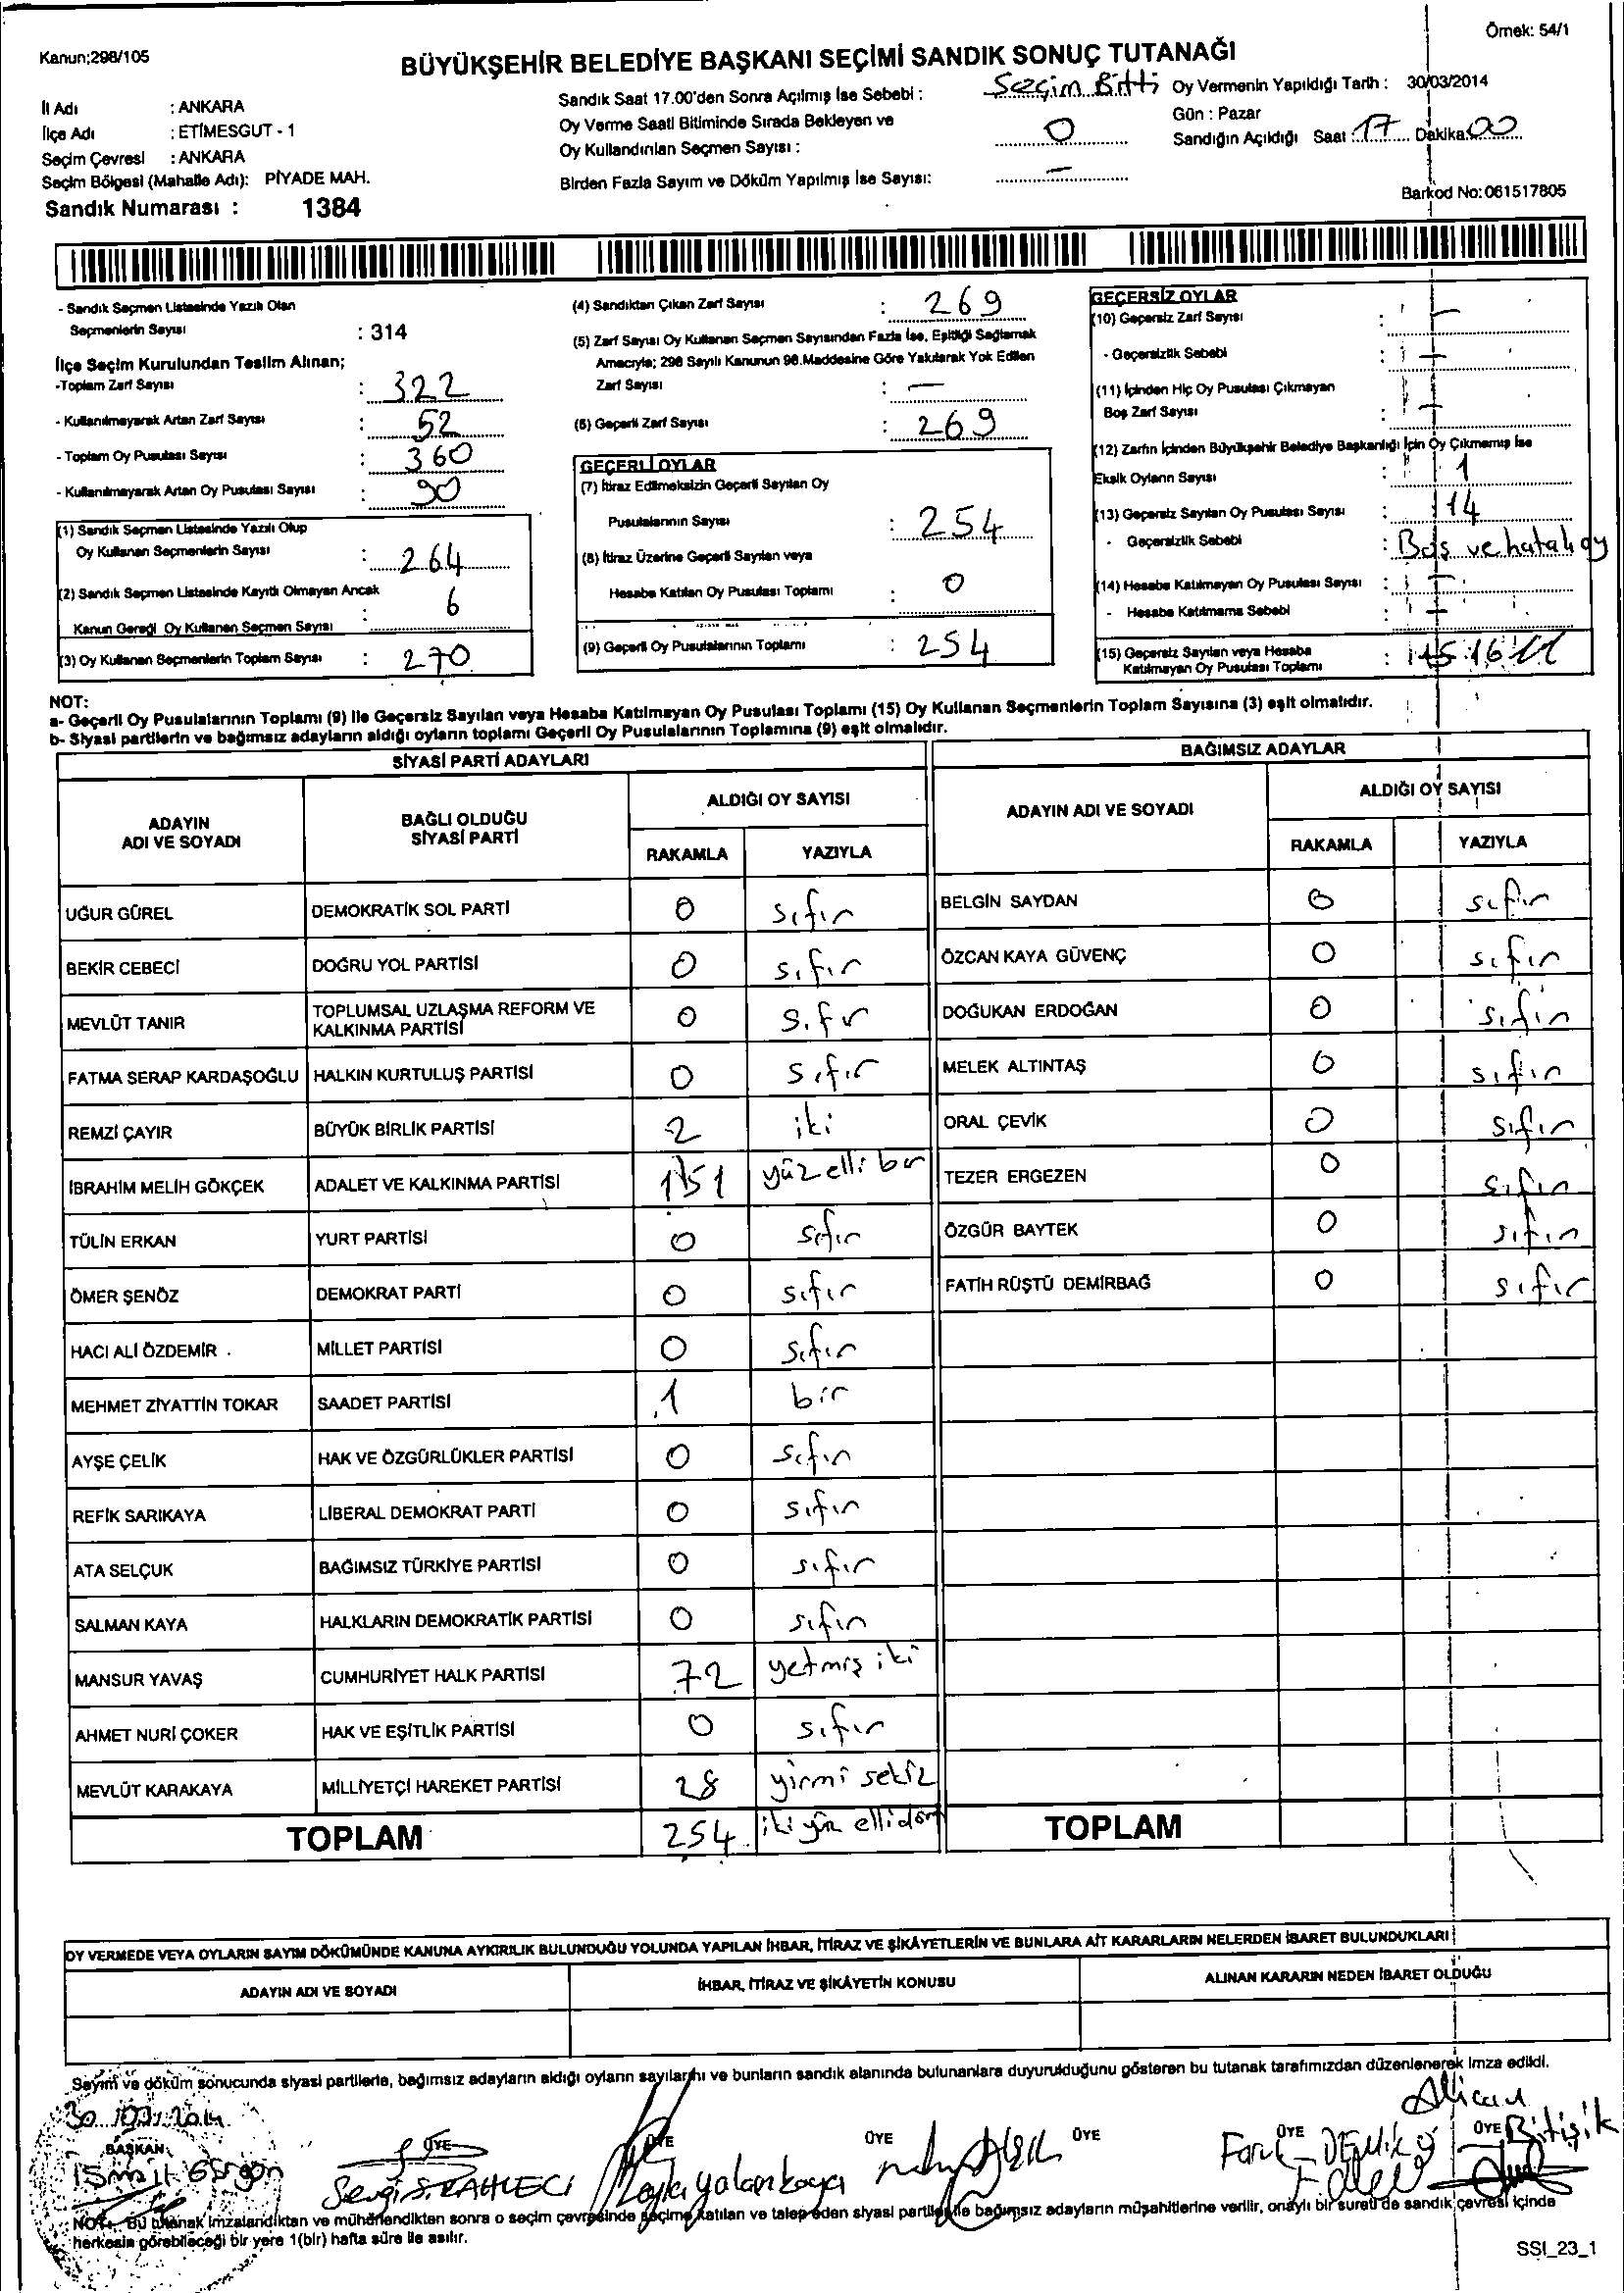 Örnek: 54/1
Kanun;298/105
BÜYÜKŞEHİR BELEDİYE BAŞKANI SEÇİMİ SANDIK SONUÇ TUTANAĞI
İl Adı : ANKARA
İlçe Adı : ETİMESGUT - 1
Seçim Çevresi : ANKARA
Seçim Bölgesi (Mahalle Adı): PİYADE MAH.
Sandık Numarası : 1384
Sandık Saat 17.00'den Sonra Açılmış İse Sebebi : Seçim Bitti
Oy Verme Saati Bitiminde Sırada Bekleyen ve
Oy Kullandırılan Seçmen Sayısı : 0
Birden Fazla Sayım ve Döküm Yapılmış İse Sayısı: —
Oy Vermenin Yapıldığı Tarih : 30/03/2014
Gün : Pazar
Sandığın Açıldığı Saat : 17 Dakika 00
Barkod No: 061517805
- Sandık Seçmen Listesinde Yazılı Olan
Seçmenlerin Sayısı : 314
İlçe Seçim Kurulundan Teslim Alınan;
-Toplam Zarf Sayısı : 322
- Kullanılmayarak Artan Zarf Sayısı : 52
- Toplam Oy Pusulası Sayısı : 360
- Kullanılmayarak Artan Oy Pusulası Sayısı : 90
(1) Sandık Seçmen Listesinde Yazılı Olup
Oy Kullanan Seçmenlerin Sayısı : 264
(2) Sandık Seçmen Listesinde Kayıtlı Olmayan Ancak
Kanun Gereği Oy Kullanan Seçmen Sayısı : 6
(3) Oy Kullanan Seçmenlerin Toplam Sayısı : 270
(4) Sandıktan Çıkan Zarf Sayısı : 269
(5) Zarf Sayısı Oy Kullanan Seçmen Sayısından Fazla İse, Eşitliği Sağlamak
Amacıyla; 298 Sayılı Kanunun 98.Maddesine Göre Yakılarak Yok Edilen
Zarf Sayısı : —
(6) Geçerli Zarf Sayısı : 269
GEÇERLİ OYLAR
(7) İtiraz Edilmeksizin Geçerli Sayılan Oy
Pusulalarının Sayısı : 254
(8) İtiraz Üzerine Geçerli Sayılan veya
Hesaba Katılan Oy Pusulası Toplamı : 0
(9) Geçerli Oy Pusulalarının Toplamı : 254
GEÇERSİZ OYLAR
(10) Geçersiz Zarf Sayısı : —
- Geçersizlik Sebebi : —
(11) İçinden Hiç Oy Pusulası Çıkmayan
Boş Zarf Sayısı : —
(12) Zarfın İçinden Büyükşehir Belediye Başkanlığı İçin Oy Çıkmamış İse
Eksik Oyların Sayısı : 1
(13) Geçersiz Sayılan Oy Pusulası Sayısı : 14
- Geçersizlik Sebebi : Boş ve hatalı oy
(14) Hesaba Katılmayan Oy Pusulası Sayısı : —
- Hesaba Katılmama Sebebi : —
(15) Geçersiz Sayılan veya Hesaba
Katılmayan Oy Pusulası Toplamı : 15 16
NOT:
a- Geçerli Oy Pusulalarının Toplamı (9) İle Geçersiz Sayılan veya Hesaba Katılmayan Oy Pusulası Toplamı (15) Oy Kullanan Seçmenlerin Toplam Sayısına (3) eşit olmalıdır.
b- Siyasi partilerin ve bağımsız adayların aldığı oyların toplamı Geçerli Oy Pusulalarının Toplamına (9) eşit olmalıdır.
SİYASİ PARTİ ADAYLARI
ADAYIN
ADI VE SOYADI
BAĞLI OLDUĞU
SİYASİ PARTİ
ALDIĞI OY SAYISI
RAKAMLA YAZIYLA
UĞUR GÜREL DEMOKRATİK SOL PARTİ 0 sıfır
BEKİR CEBECİ DOĞRU YOL PARTİSİ 0 sıfır
MEVLÜT TANIR TOPLUMSAL UZLAŞMA REFORM VE
KALKINMA PARTİSİ 0 sıfır
FATMA SERAP KARDAŞOĞLU HALKIN KURTULUŞ PARTİSİ 0 sıfır
REMZİ ÇAYIR BÜYÜK BİRLİK PARTİSİ 2 iki
İBRAHİM MELİH GÖKÇEK ADALET VE KALKINMA PARTİSİ 151 yüz elli bir
TÜLİN ERKAN YURT PARTİSİ 0 sıfır
ÖMER ŞENÖZ DEMOKRAT PARTİ 0 sıfır
HACI ALİ ÖZDEMİR MİLLET PARTİSİ 0 sıfır
MEHMET ZİYATTİN TOKAR SAADET PARTİSİ 1 bir
AYŞE ÇELİK HAK VE ÖZGÜRLÜKLER PARTİSİ 0 sıfır
REFİK SARIKAYA LİBERAL DEMOKRAT PARTİ 0 sıfır
ATA SELÇUK BAĞIMSIZ TÜRKİYE PARTİSİ 0 sıfır
SALMAN KAYA HALKLARIN DEMOKRATİK PARTİSİ 0 sıfır
MANSUR YAVAŞ CUMHURİYET HALK PARTİSİ 72 yetmiş iki
AHMET NURİ ÇOKER HAK VE EŞİTLİK PARTİSİ 0 sıfır
MEVLÜT KARAKAYA MİLLİYETÇİ HAREKET PARTİSİ 28 yirmi sekiz
TOPLAM 254 iki yüz elli dört
BAĞIMSIZ ADAYLAR
ADAYIN ADI VE SOYADI
ALDIĞI OY SAYISI
RAKAMLA YAZIYLA
BELGİN SAYDAN 0 sıfır
ÖZCAN KAYA GÜVENÇ 0 sıfır
DOĞUKAN ERDOĞAN 0 sıfır
MELEK ALTINTAŞ 0 sıfır
ORAL ÇEVİK 0 sıfır
TEZER ERGEZEN 0 sıfır
ÖZGÜR BAYTEK 0 sıfır
FATİH RÜŞTÜ DEMİRBAĞ 0 sıfır
TOPLAM
OY VERMEDE VEYA OYLARIN SAYIM DÖKÜMÜNDE KANUNA AYKIRILIK BULUNDUĞU YOLUNDA YAPILAN İHBAR, İTİRAZ VE ŞİKÂYETLERİN VE BUNLARA AİT KARARLARIN NELERDEN İBARET BULUNDUKLARI
ADAYIN ADI VE SOYADI
İHBAR, İTİRAZ VE ŞİKÂYETİN KONUSU
ALINAN KARARIN NEDEN İBARET OLDUĞU
Sayım ve döküm sonucunda siyasi partilerle, bağımsız adayların aldığı oyların sayılarını ve bunların sandık alanında bulunanlara duyurulduğunu gösteren bu tutanak tarafımızdan düzenlenerek imza edildi.
30/03/2014
BAŞKAN ÜYE ÜYE ÜYE ÜYE ÜYE ÜYE
İsmail
Leyla yalankaya
Alican
Bitişik
NOT: Bu tutanak imzalandıktan ve mühürlendikten sonra o seçim çevresinde seçime katılan ve talep eden siyasi partiler ile bağımsız adayların müşahitlerine verilir, onaylı bir sureti de sandık çevresi içinde
herkesin görebileceği bir yere 1(bir) hafta süre ile asılır.
SSI_23_1